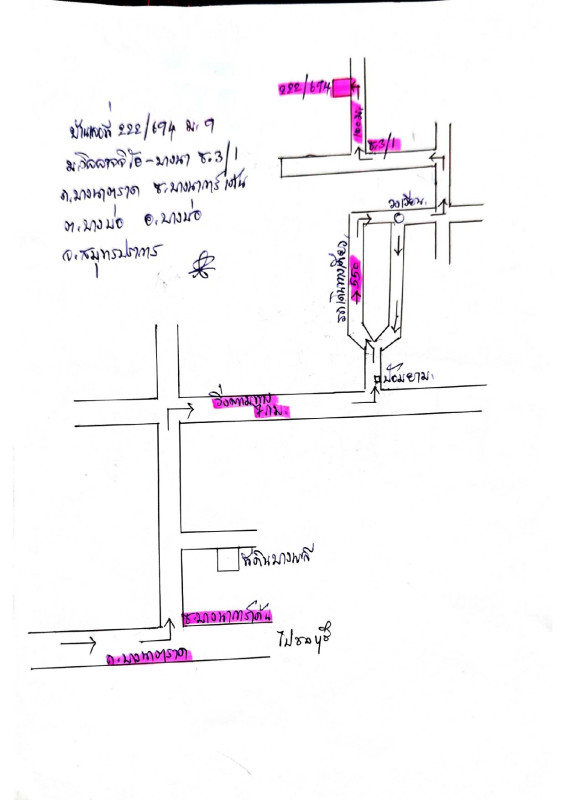 บ้านเลขที่ 222/694 ม.9
ซ.3/1
ถ.บางนาตราด ซ.บางนาการ์เด้น
ต.บางบ่อ อ.บางบ่อ
จ.สมุทรปราการ
222/694
ซ.3/1
วงเวียน
550
ป้อมยาม
วิ่งตามทาง
7 กม.
ที่ดินบางพลี
ซ.บางนาการ์เด้น
ไปชลบุรี
ถ.บางนาตราด